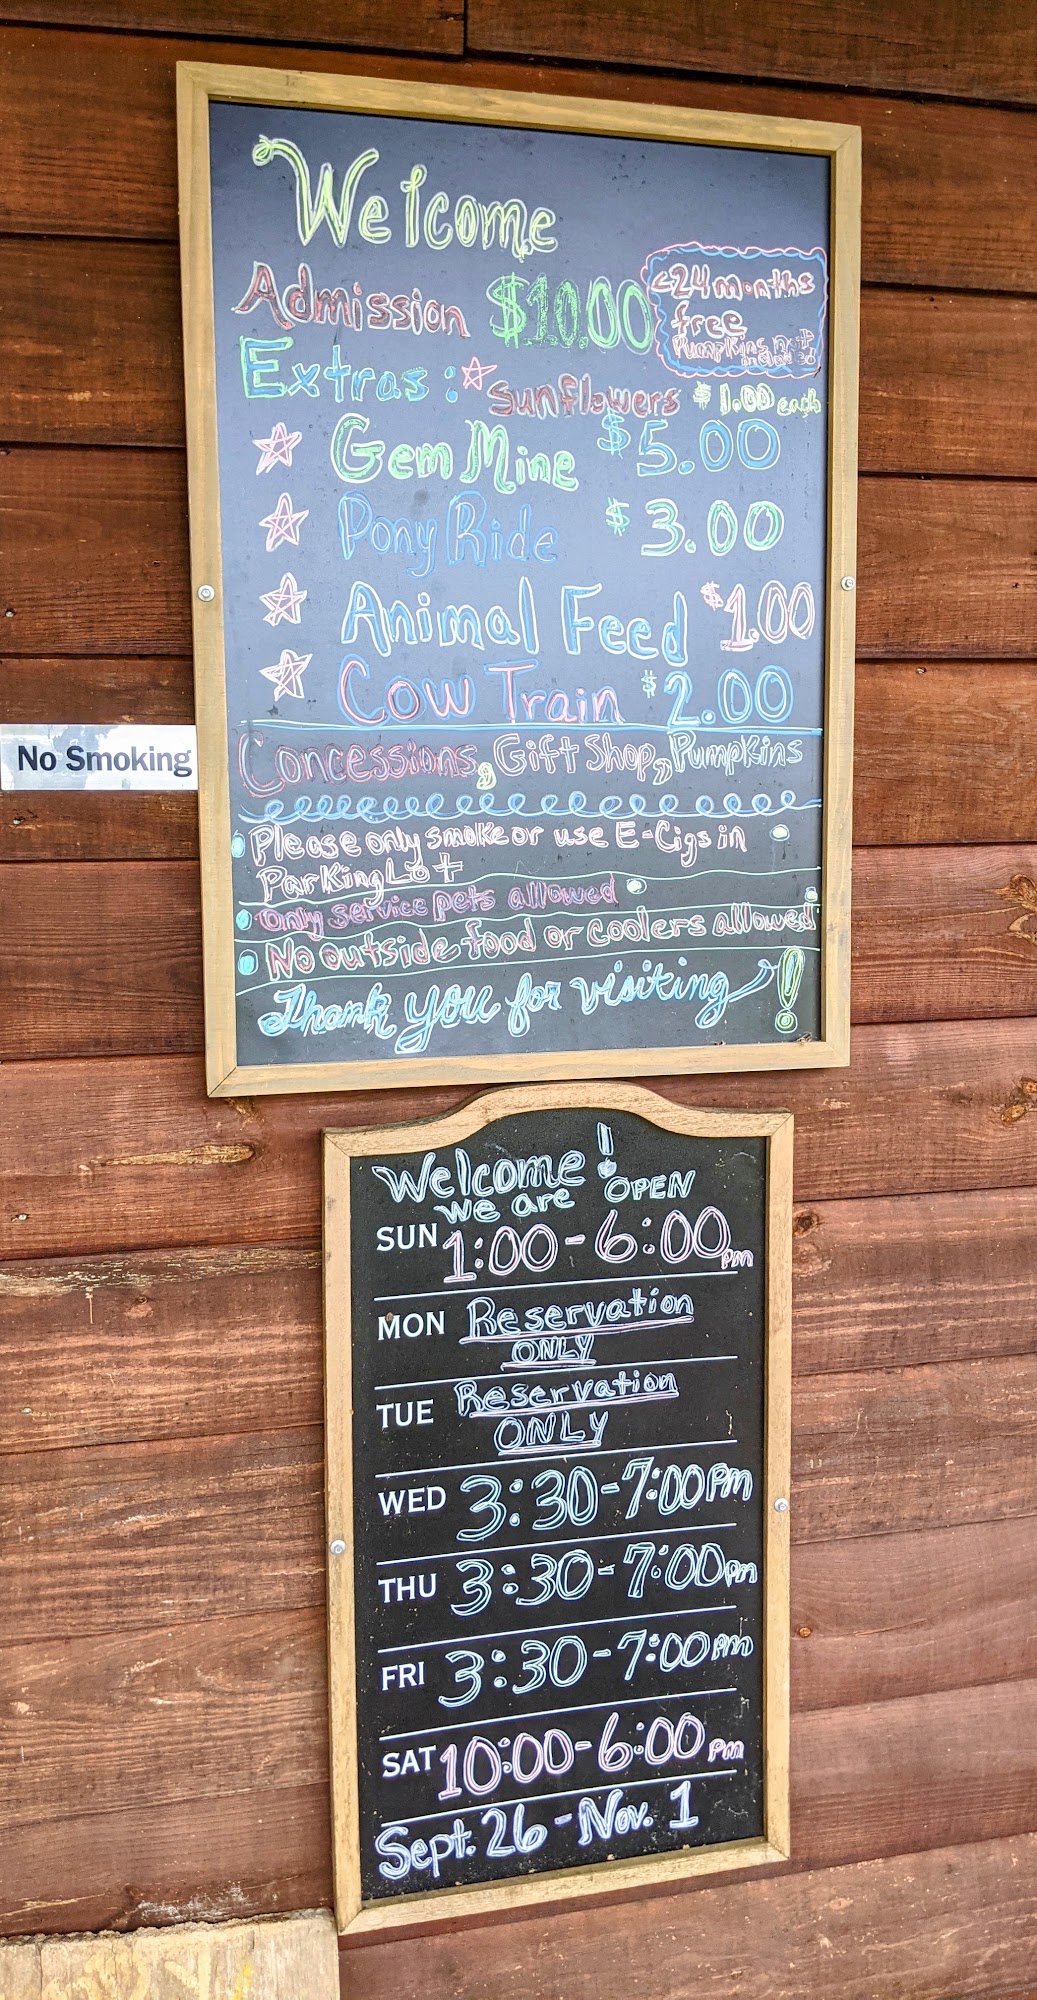 Welcome
Admission $10.00
<24 months
free
Pumpkins not
included
Extras: Sunflowers $1.00 each
Gem Mine $5.00
Pony Ride $3.00
Animal Feed $1.00
Cow Train $2.00
Concessions, Gift Shop, Pumpkins
No Smoking
Please only smoke or use E-Cigs in
Parking Lot
Only service pets allowed
No outside food or coolers allowed
Thank you for visiting!
Welcome!
we are OPEN
SUN 1:00-6:00 pm
MON Reservation
ONLY
TUE Reservation
ONLY
WED 3:30-7:00 pm
THU 3:30-7:00 pm
FRI 3:30-7:00 pm
SAT 10:00-6:00 pm
Sept. 26 - Nov. 1